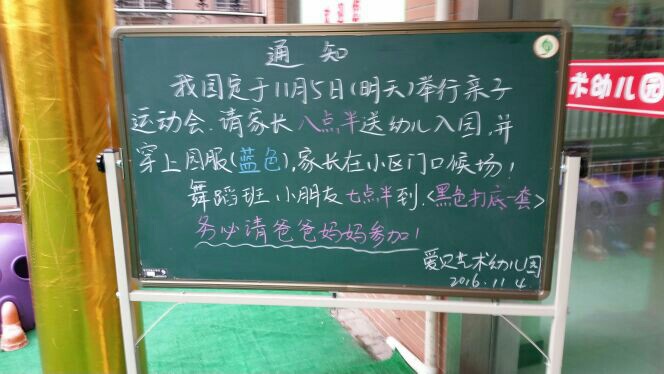 通知
我园定于11月5日(明天)举行亲子
运动会.请家长八点半送幼儿入园,并
穿上园服(蓝色),家长在小区门口候场!
舞蹈班小朋友七点半到.<黑色打底一套>
务必请爸爸妈妈参加!
爱贝艺术幼儿园
2016.11.4
术幼儿园